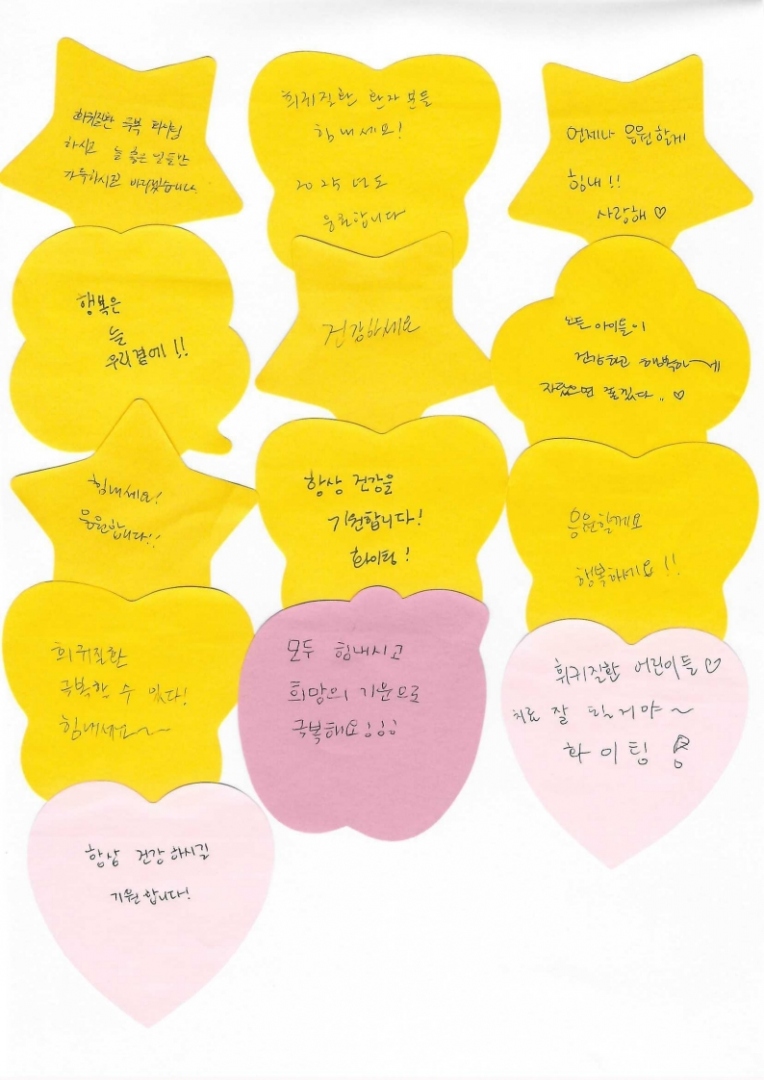 희귀질환 극복
하시고 늘 좋은 일들만
가득하시길 바라겠습니다.
희귀질환 환자분들
힘내세요!
2025년도
응원합니다
언제나 응원할게
힘내!!
사랑해♡
행복은
늘
우리곁에!!
건강하세요
모든 아이들이
건강하고 행복하~게
자랐으면 좋겠다..♡
힘내세요!
응원합니다!!
항상 건강을
기원합니다!
화이팅!
응원할게요
행복하세요!!
희귀질환
극복할 수 있다!
힘내세요~~
모두 힘내시고
희망의 기운으로
극복해요!!!
휘귀질환 어린이들♡
치료 잘 될거야~
화이팅!
항상 건강하시길
기원합니다!